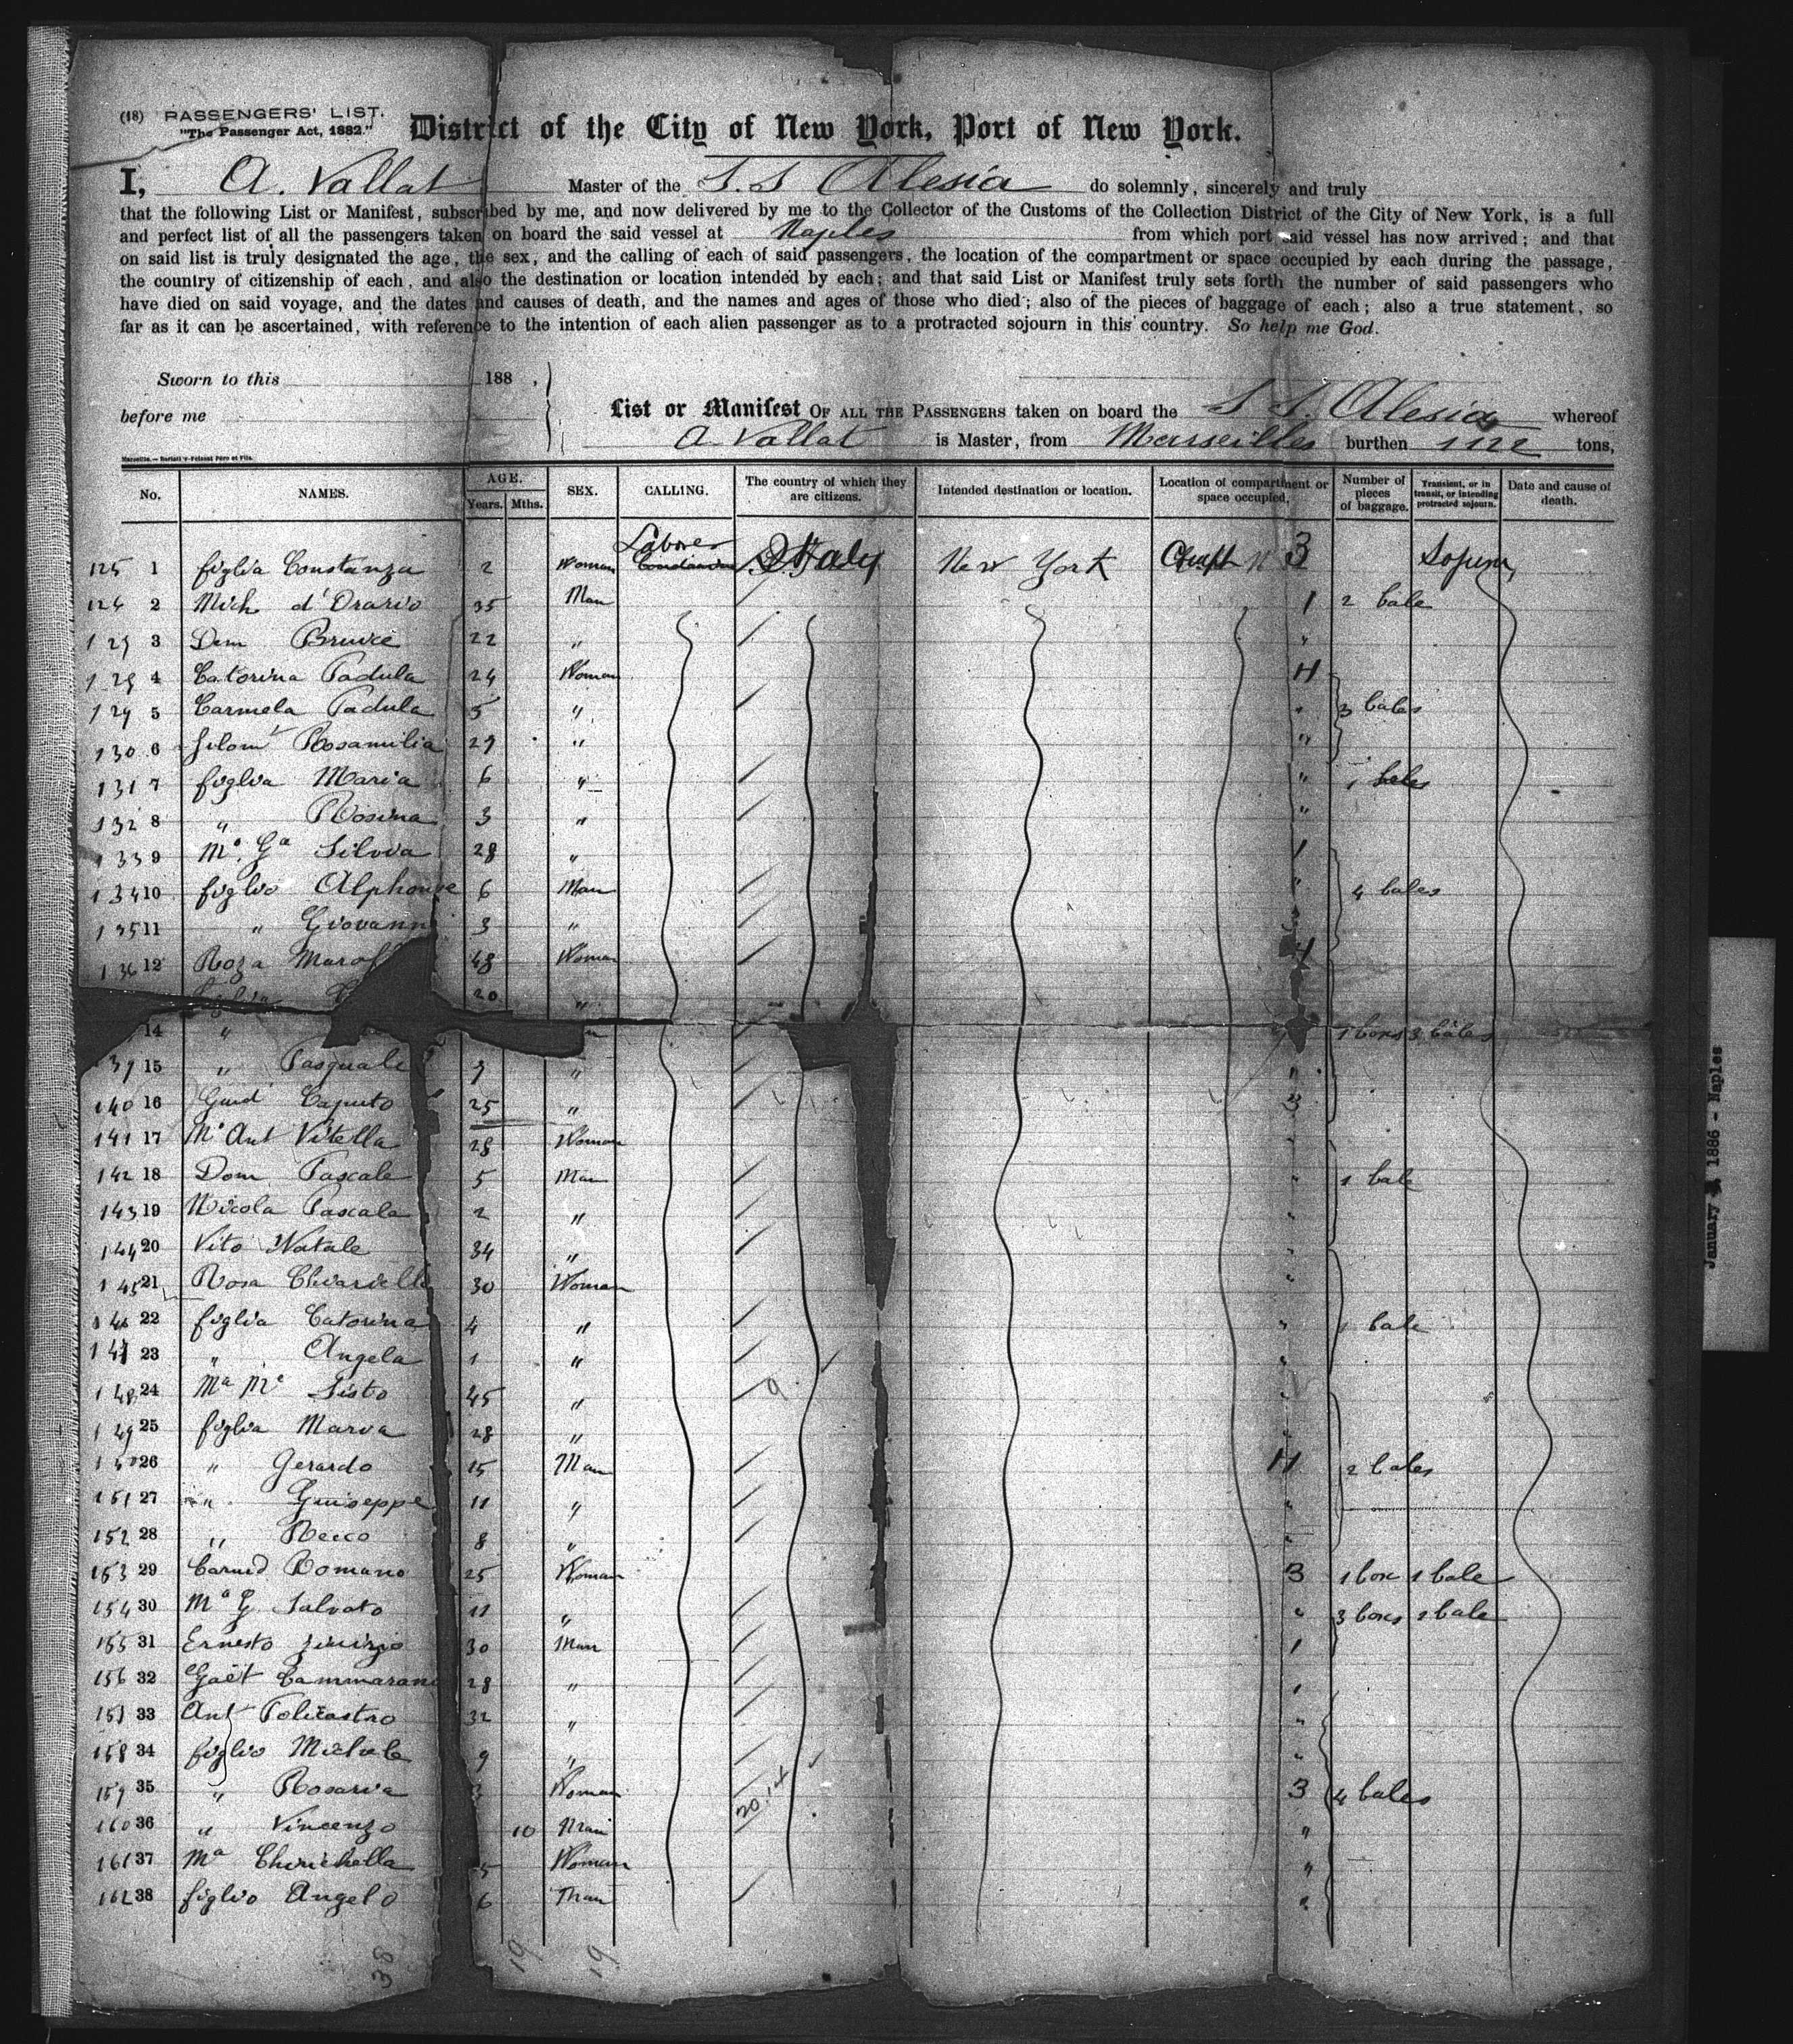 (18) PASSENGERS' LIST.
"The Passenger Act, 1882."
District of the City of New York, Port of New York.
I, A. Vallat Master of the S. S Alesia do solemnly, sincerely and truly
that the following List or Manifest, subscribed by me, and now delivered by me to the Collector of the Customs of the Collection District of the City of New York, is a full
and perfect list of all the passengers taken on board the said vessel at Naples from which port said vessel has now arrived; and that
on said list is truly designated the age, the sex, and the calling of each of said passengers, the location of the compartment or space occupied by each during the passage,
the country of citizenship of each, and also the destination or location intended by each; and that said List or Manifest truly sets forth the number of said passengers who
have died on said voyage, and the dates and causes of death, and the names and ages of those who died; also of the pieces of baggage of each; also a true statement, so
far as it can be ascertained, with reference to the intention of each alien passenger as to a protracted sojourn in this country. So help me God.
Sworn to this 188 ,
before me
List or Manifest OF ALL THE PASSENGERS taken on board the S S. Alesia whereof
A Vallat is Master, from Marseilles burthen 1122 tons,
No. NAMES. AGE. Years. Mths. SEX. CALLING. The country of which they are citizens. Intended destination or location. Location of compartment or space occupied. Number of pieces of baggage. Transient, or in transit, or intending protracted sojourn. Date and cause of death.
125 1 figlia Constanza 2 Woman Labore Italy New York 3
126 2 Mich d'Orario 35 Man 1 2 bale
3 Dem 22 "
4 Catorina Padula 24 Woman 4
129 5 Carmela Padula 5 " " 3 bales
130 6 Filom Rosamilia 29 " "
131 7 figlia Maria 6 " " 1 bales
132 8 " Rosina 3 " "
133 9 Ma. Ga Silvia 28 " 1
134 10 figlio Alphonse 6 Man " 4 bales
135 11 " Giovann 3 "
136 12 Roza 48 Woman 4
20 "
14 " 1 boxs 3 bales
39 15 " Pasquale 9 " "
140 16 Caputo 25 " 3
141 17 Ma Ant Vitella 28 Woman "
142 18 Dom Pascale 5 Man " 1 bale
143 19 Nicola Pascala 2 " "
144 20 Vito Natale 34 " "
145 21 Rosa Chiariell 30 Woman "
146 22 figlia Catorina 4 " " 1 bale
147 23 " Angela 1 " "
148 24 Ma Sisto 45 " "
149 25 figlia Maria 28 " "
26 " Gerardo 15 Man 4 2 bales
151 27 " Guiseppe 11 " "
152 28 " Rocco 8 " "
153 29 Romano 25 Woman 3 1 box 1 bale
154 30 Ma G. Salvato 11 " " 3 boxs 1 bale
155 31 Ernesto 30 Man 1
156 32 Gaët Cammarano 28 " 1
33 Ant Policastro 32 " "
158 34 figlio Michele 9 " "
159 35 " Rosaria Woman 3 4 bales
160 36 " Vincenzo 10 Man "
161 37 Ma Chirichella 5 Woman "
162 38 figlio Angelo 6 Man "
38 19 19
January 1886 - Naples